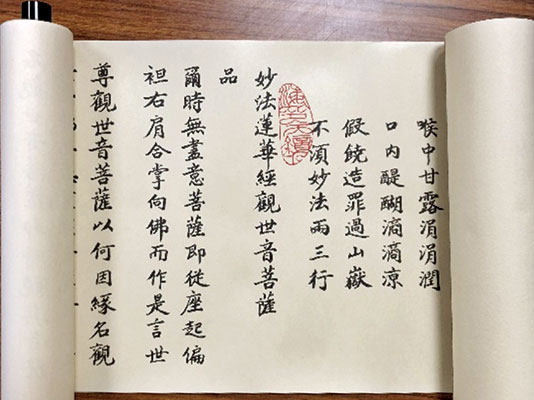 喉中甘露涓涓潤
口內醍醐滴滴涼
假饒造罪過山嶽
不須妙法兩三行
妙法蓮華經觀世音菩薩
品
爾時無盡意菩薩即從座起偏
袒右肩合掌向佛而作是言世
尊觀世音菩薩以何因緣名觀